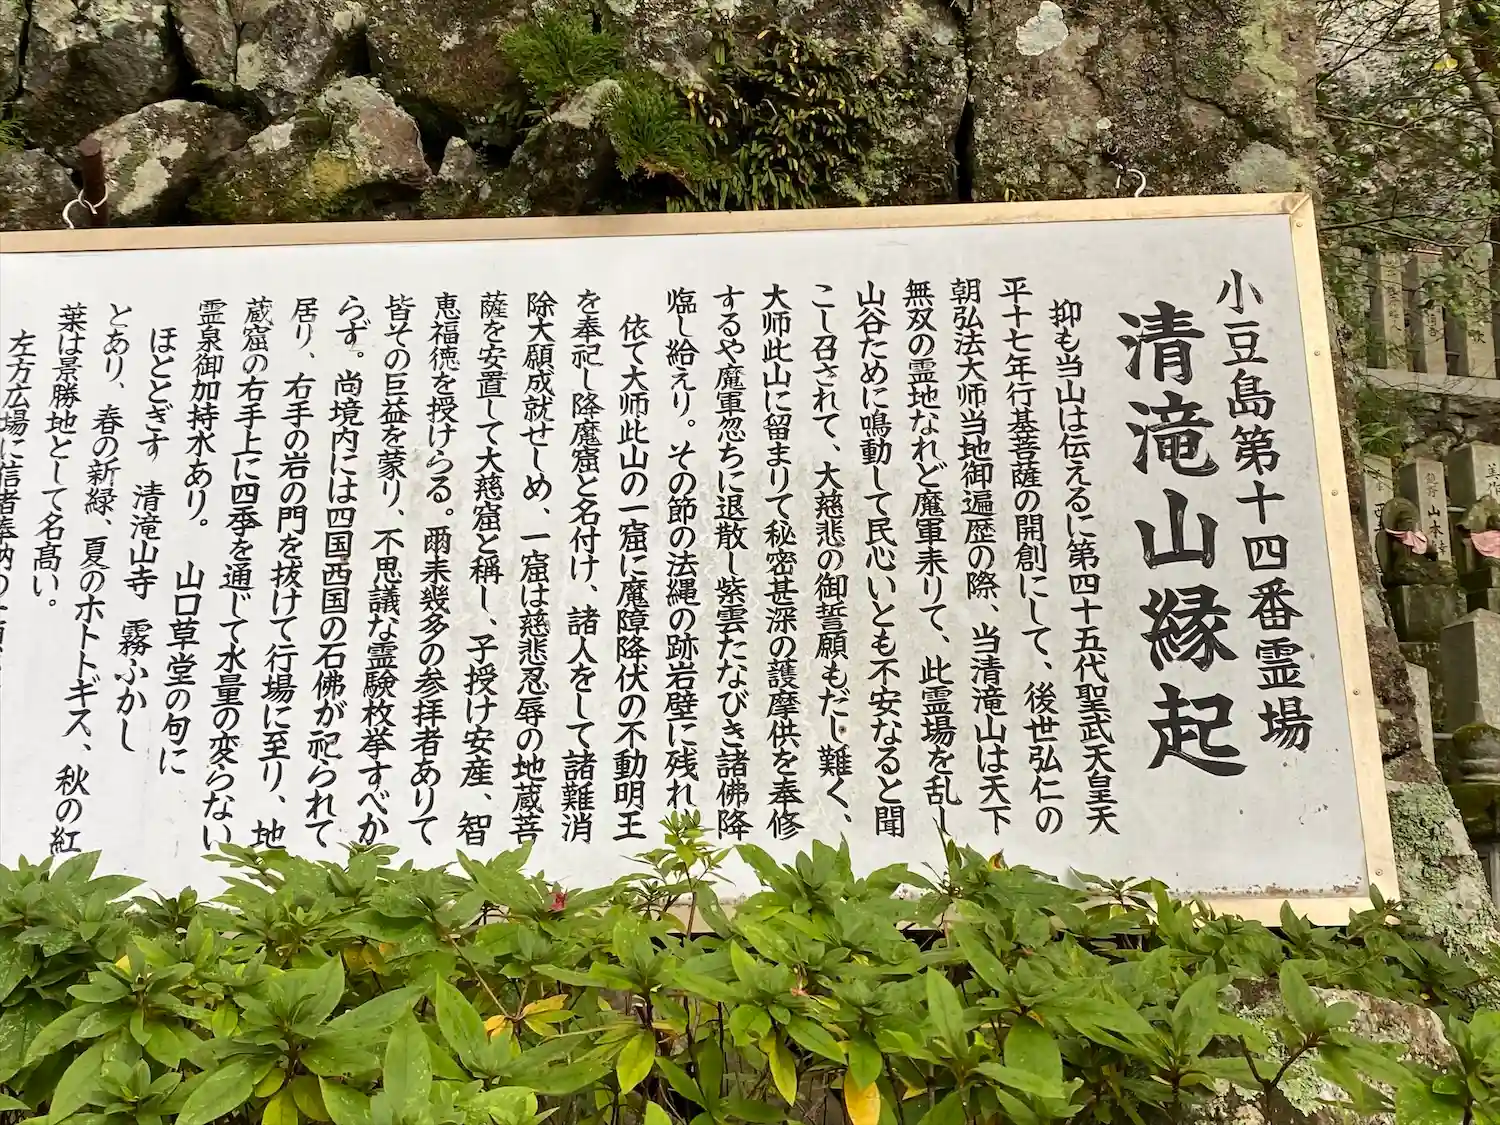 小豆島第十四番霊場
清滝山縁起
抑も当山は伝えるに第四十五代聖武天皇天
平十七年行基菩薩の開創にして、後世弘仁の
朝弘法大師当地御遍歴の際、当清滝山は天下
無双の霊地なれど魔軍来りて、此霊場を乱し
山谷ために鳴動して民心いとも不安なると聞
こし召されて、大慈悲の御誓願もだし難く、
大师此山に留まりて秘密甚深の護摩供を奉修
するや魔軍忽ちに退散し紫雲たなびき諸佛降
臨し給えり。その節の法縄の跡岩壁に残れ
依て大师此山の一窟に魔障降伏の不動明王
を奉祀し降魔窟と名付け、諸人をして諸難消
除大願成就せしめ、一窟は慈悲忍辱の地蔵菩
薩を安置して大慈窟と稱し、子授け安産、智
恵福徳を授けらる。爾来幾多の参拝者ありて
皆その巨益を蒙り、不思議な霊験枚挙すべか
らず。尚境内には四国西国の石佛が祀られて
居り、右手の岩の門を抜けて行場に至り、地
蔵窟の右手上に四季を通じて水量の変らない
霊泉御加持水あり。 山口草堂の句に
ほととぎす 清滝山寺 霧ふかし
とあり、春の新緑、夏のホトトギス、秋の紅
葉は景勝地として名髙い。
左方広場に信者奉納の
山本寺